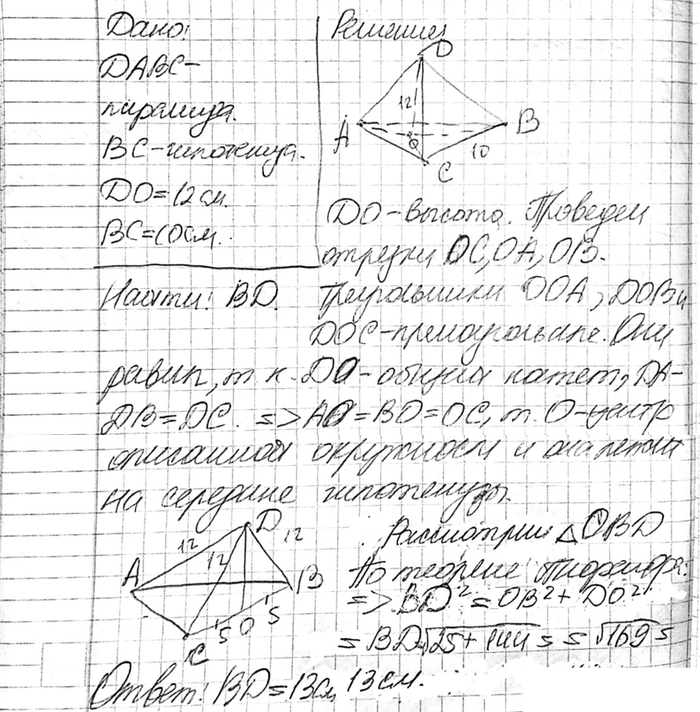 Дано:
DABC-
пирамида.
BC-гипотенуза.
DO=12см.
BC=10см.
Найти: BD.
Решение
D
12
A
O
B
10
C
DO-высота. Проведем
отрезки OC, OA, OB.
Треугольники DOA, DOB и
DOC-прямоугольные. Они
равны, т.к. DO-общий катет, DA-
DB=DC. => AO=BO=OC, т. O-центр
описанной окружности и она лежит
на середине гипотенузы.
D
12
12
12
A
B
5
O
5
C
Рассмотрим △OBD
По теореме Пифагора:
=> BD²=OB²+DO²
=BD=√25+144= =√169=
Ответ: BD=13см, 13см.